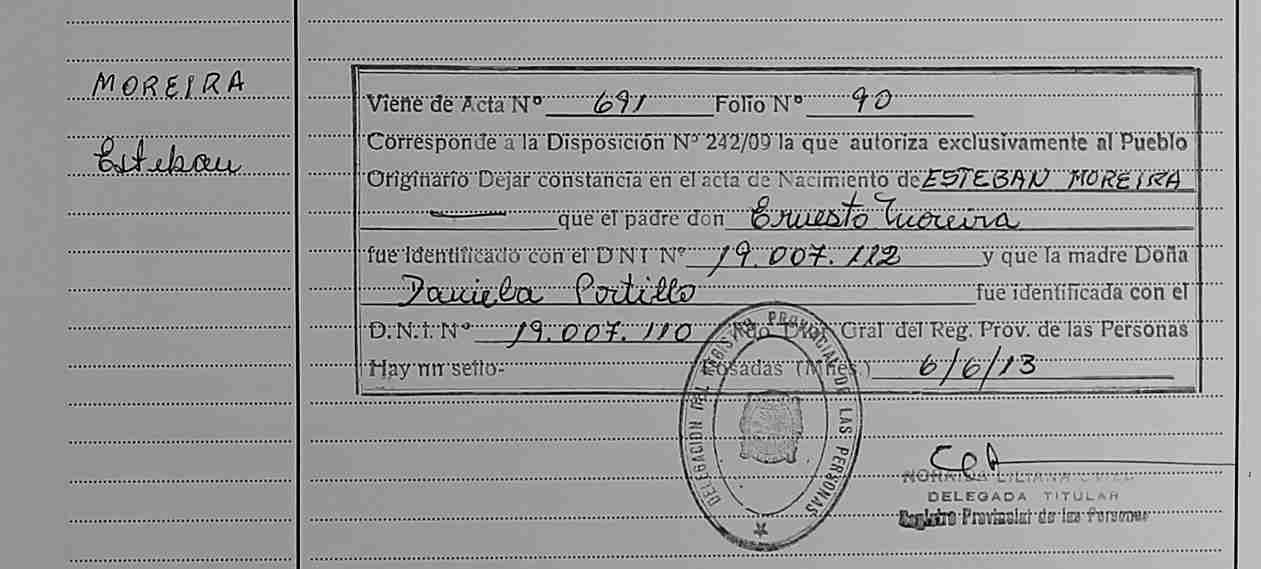 MOREIRA
Esteban
Viene de Acta Nº 691 Folio Nº 90
Corresponde a la Disposición Nº 242/09 la que autoriza exclusivamente al Pueblo
Originario Dejar constancia en el acta de Nacimiento de ESTEBAN MOREIRA
que el padre don Ernesto Moreira
fue identificado con el DNI Nº 19.007.112 y que la madre Doña
Daniela Portillo fue identificada con el
D.N.I. Nº 19.007.110 Fdo Gral del Reg. Prov. de las Personas
Hay un sello- Posadas (Mnes.) 6/6/13
DELEGACION DEL REGISTRO PROVINCIAL DE LAS PERSONAS
LILIANA
DELEGADA TITULAR
Registro Provincial de las Personas